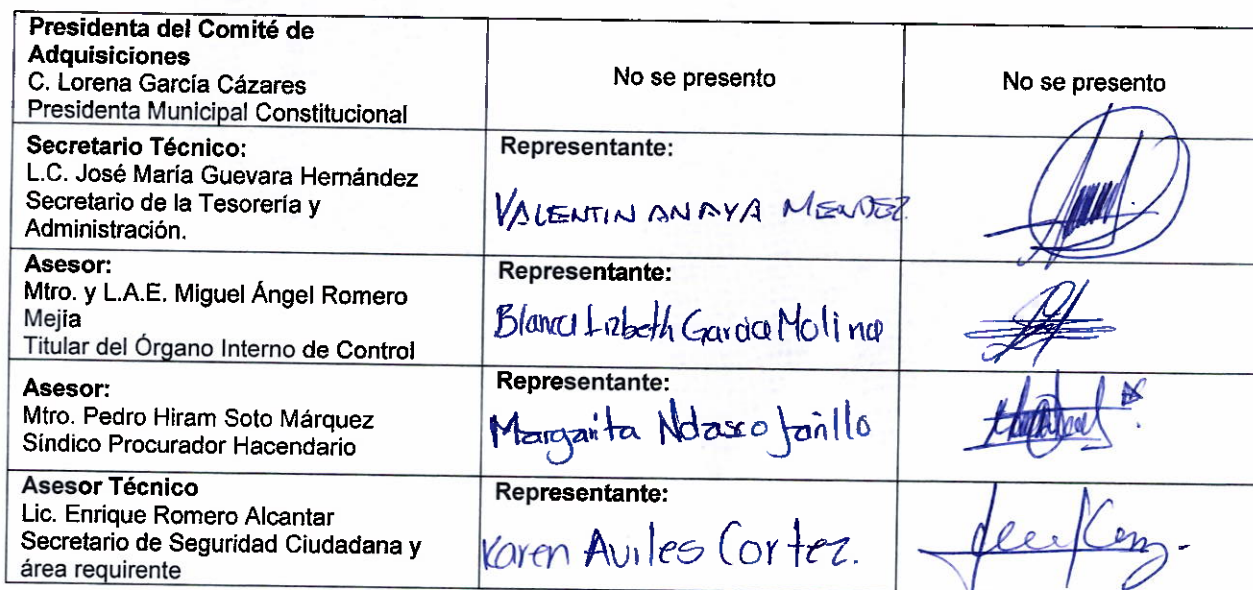 Presidenta del Comité de
Adquisiciones
C. Lorena García Cázares
Presidenta Municipal Constitucional
No se presento
No se presento
Secretario Técnico:
L.C. José María Guevara Hernández
Secretario de la Tesorería y
Administración.
Representante:
VALENTIN ANAYA MENDEZ
Asesor:
Mtro. y L.A.E. Miguel Ángel Romero
Mejia
Titular del Órgano Interno de Control
Representante:
Blanca Lizbeth Garcia Molina
Asesor:
Mtro. Pedro Hiram Soto Márquez
Síndico Procurador Hacendario
Representante:
Margarita Jarillo
Asesor Técnico
Lic. Enrique Romero Alcantar
Secretario de Seguridad Ciudadana y
área requirente
Representante:
Karen Aviles Cortez.